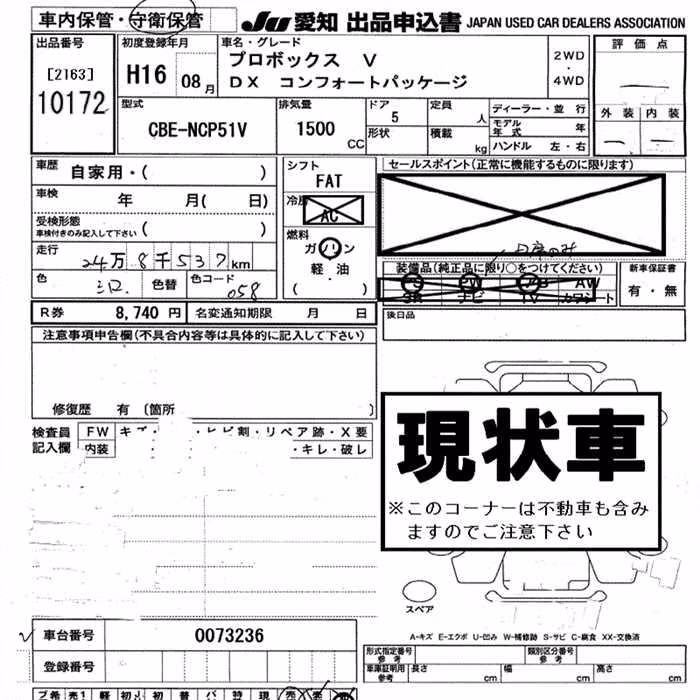 車内保管・守衛保管 JU 愛知 出品申込書 JAPAN USED CAR DEALERS ASSOCIATION
出品番号 初度登録年月 車名・グレード 評価点
[2163] H16 08月 プロボックス V 2WD
・
10172 DX コンフォートパッケージ 4WD
型式 排気量 ドア 定員 ディーラー・並行 外装 内装
CBE-NCP51V 1500 CC 5 人 モデル年式 年
形状 積載 kg ハンドル 左・右
車歴 自家用・( ) シフト セールスポイント(正常に機能するものに限ります)
FAT
車検 年 月( 日) 冷房
AC
受検形態 ( )
車検付きのみ記入して下さい
燃料
走行 24万8千537km ガソリン
軽油
( )
色 シロ 色替 色コード 058
装備品(純正品に限り○をつけてください) 新車保証書
PS PW AB AW 有・無
SR ナビ TV カワシート
R券 8,740円 名変通知期限 月 日 後日品
注意事項申告欄(不具合内容等は具体的に記入して下さい)
修復歴 有 〔箇所 〕
検査員 FW キズ・ヒビ割・リペア跡・X要
記入欄 内装 ・キレ・破レ
現状車
※このコーナーは不動車も含み
ますのでご注意下さい
スペア
A-キズ E-エクボ U-凹み W-補修跡 S-サビ C-腐食 XX-交換済
車台番号 0073236
登録番号
形式指定番号 参考 類別区分番号 参考
車庫証明用 参考 長さ cm 幅 cm 高さ cm